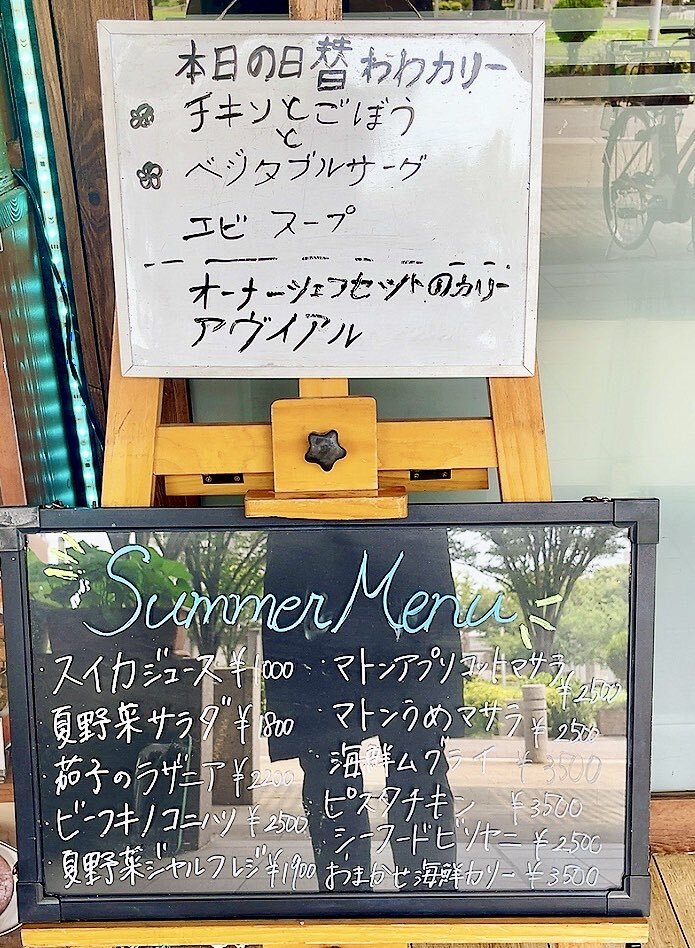 本日の日替わりカリー
チキンとごぼう
と
ベジタブルサーグ
エビ スープ
オーナーシェフセットのカリー
アヴィアル
Summer Menu
・スイカジュース ¥1000
・夏野菜サラダ ¥1800
・茄子のラザニア ¥2200
・ビーフキノコニハリ ¥2500
・夏野菜ジャルフレジ ¥1900
・マトンアプリコットマサラ ¥2500
・マトンうめマサラ ¥2500
・海鮮ムグライ ¥3500
・ピスタチキン ¥3500
・シーフードビリヤニ ¥2500
・おまかせ海鮮カリー ¥3500